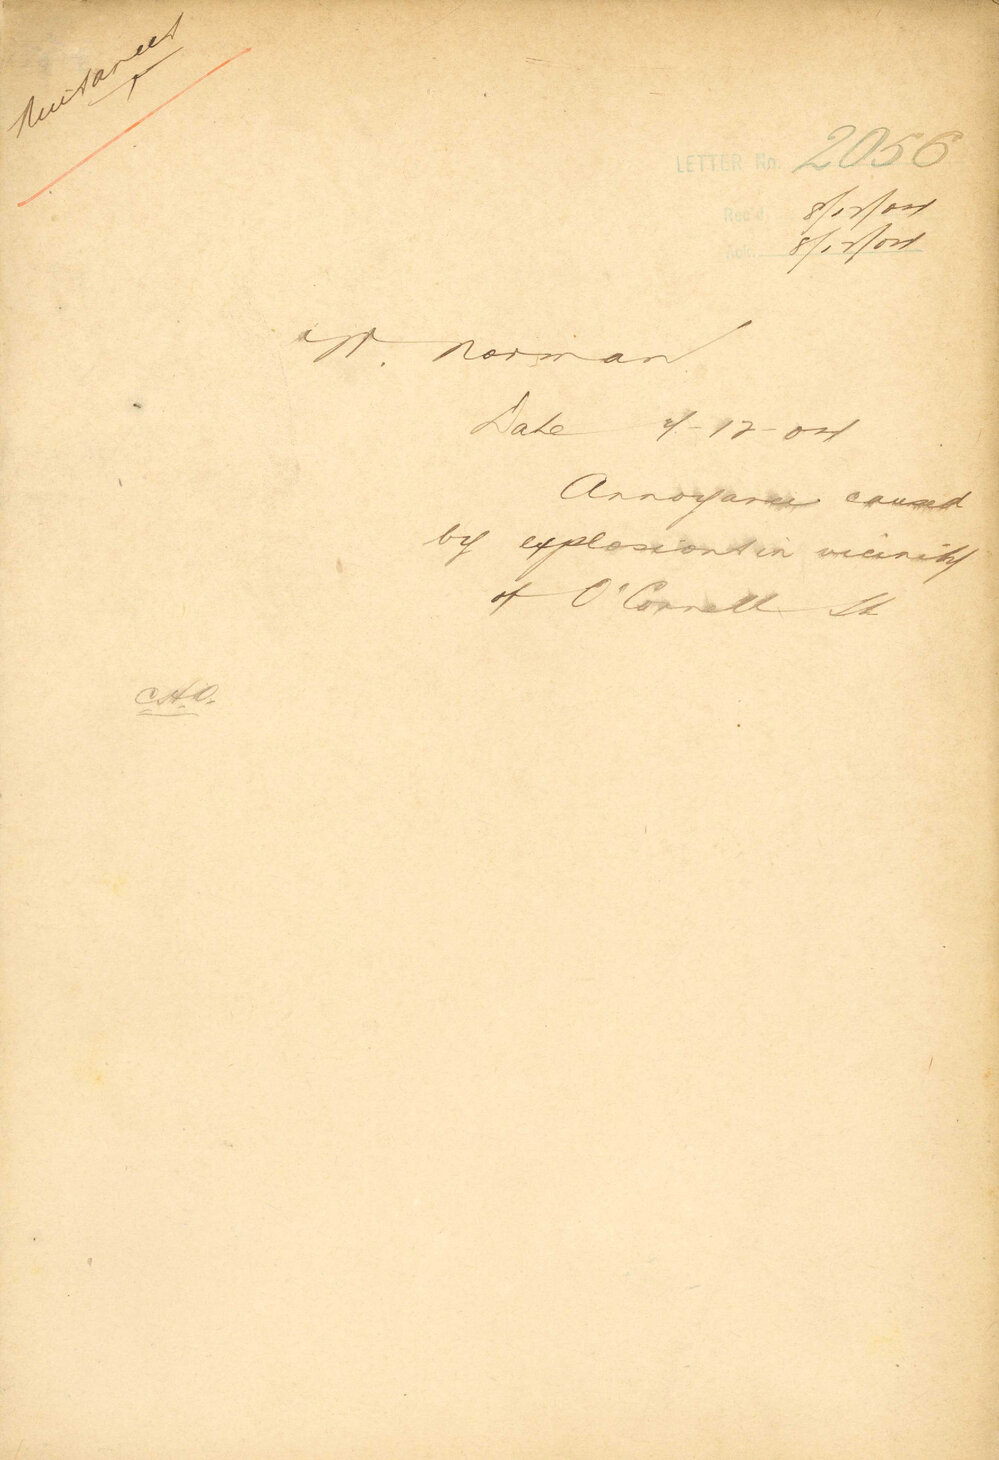 Nuisances
LETTER No. 2056
Rec'd 8/12/04
8/12/04
W. Norman
Date 7-12-04
Annoyance caused
by explosions in vicinity
of O'Connell St
C.H.O.